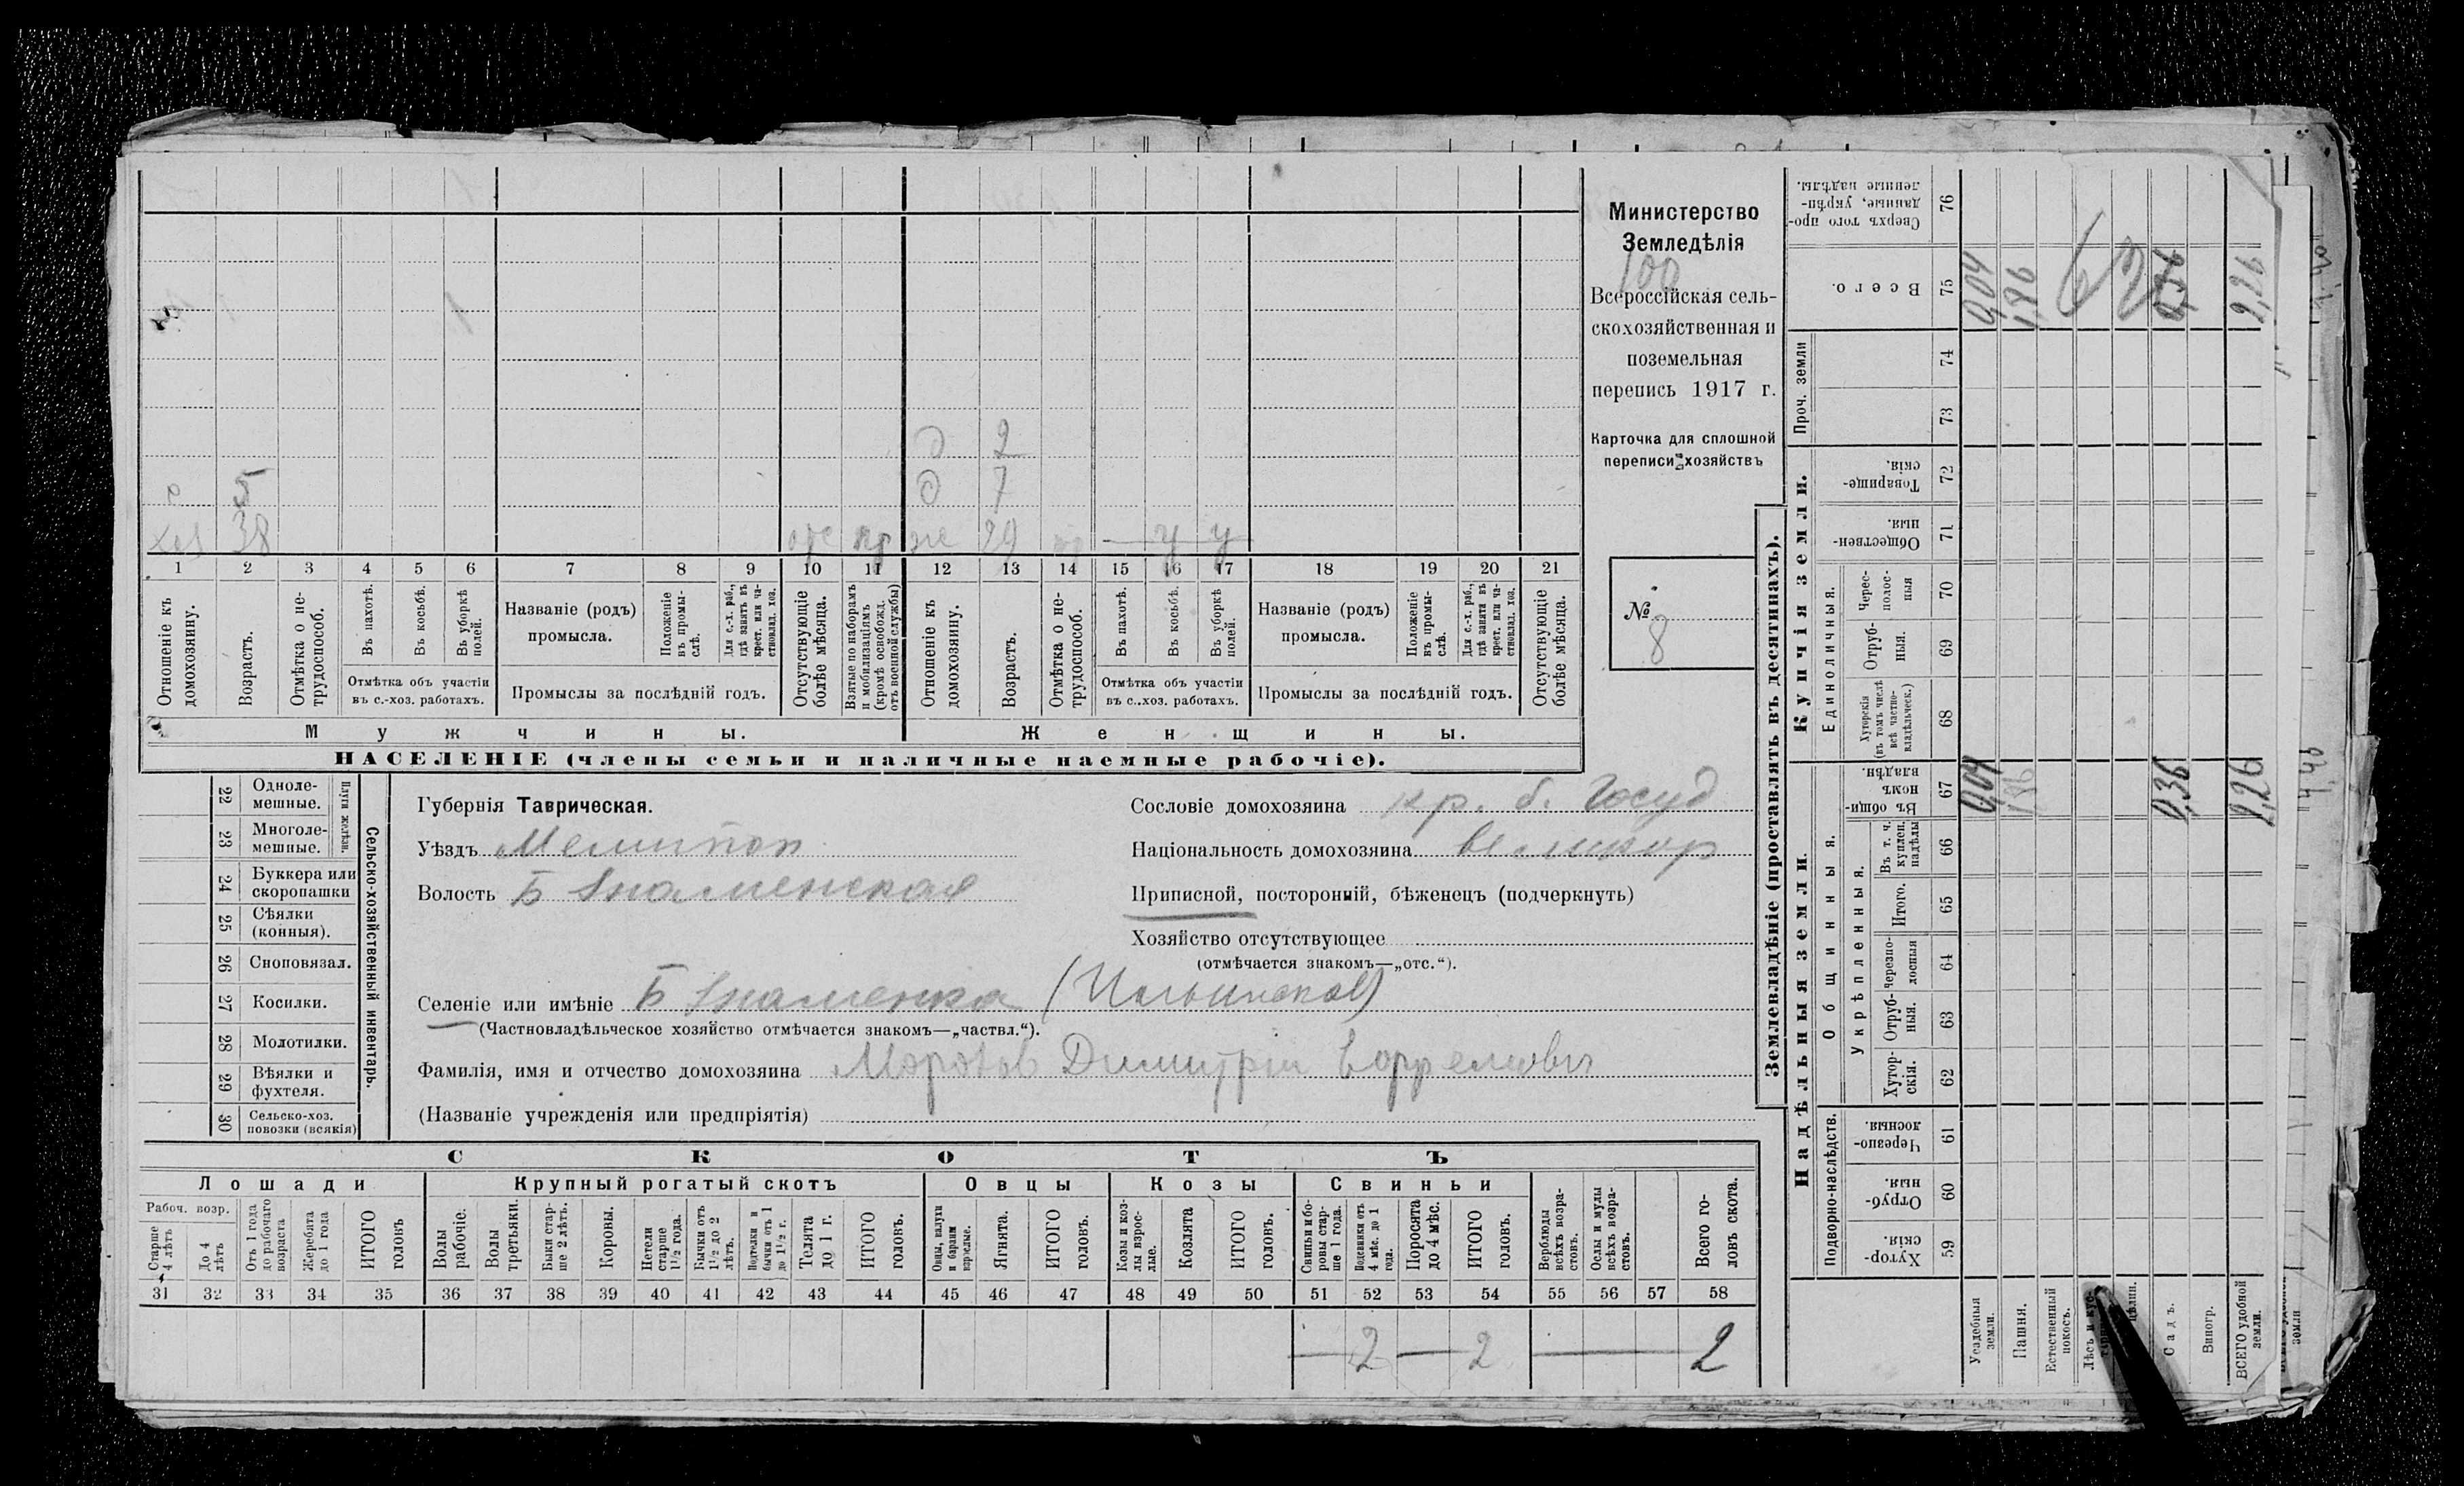 Министерство
Земледѣлія
100
Всероссійская сель-
скохозяйственная и
поземельная
перепись 1917 г.
Карточка для сплошной
переписи хозяйствъ
№
8
д 2
5 д 7
хоз 38 отс же 29 — у у
1 2 3 4 5 6 7 8 9 10 11 12 13 14 15 16 17 18 19 20 21
Отношеніе къ домохозяину.
Возрастъ.
Отмѣтка о не-трудоспособ.
Въ пахотѣ.
Въ косьбѣ.
Въ уборкѣ полей.
Отмѣтка объ участіи
въ с.-хоз. работахъ.
Названіе (родъ)
промысла.
Положеніе въ промы-слѣ.
Для с.-х. раб., гдѣ занятъ въ крест. или ча-стновлад. хоз.
Промыслы за послѣдній годъ.
Отсутствующіе болѣе мѣсяца.
Взятые по наборамъ и мобилизаціямъ (кромѣ освобожд. отъ военной службы)
Отношеніе къ домохозяину.
Возрастъ.
Отмѣтка о не-трудоспособ.
Въ пахотѣ.
Въ косьбѣ.
Въ уборкѣ полей.
Отмѣтка объ участіи
въ с.-хоз. работахъ.
Названіе (родъ)
промысла.
Положеніе въ промы-слѣ.
Для с.-х. раб., гдѣ заняты въ крест. или ча-стновлад. хоз.
Промыслы за послѣдній годъ.
Отсутствующіе болѣе мѣсяца.
Мужчины. Женщины.
НАСЕЛЕНІЕ (члены семьи и наличные наемные рабочіе).
22 Одноле-мешные.
23 Многоле-мешные.
Плуги желѣзн.
24 Буккера или скоропашки
25 Сѣялки (конныя).
26 Сноповязал.
27 Косилки.
28 Молотилки.
29 Вѣялки и фухтеля.
30 Сельско-хоз. повозки (всякія)
Сельско-хозяйственный инвентарь.
Губернія Таврическая.
Уѣздъ Мелитоп
Волость Б Знаменская
Сословіе домохозяина кр. б. Госуд
Національность домохозяина великор
Приписной, посторонній, бѣженецъ (подчеркнуть)
Хозяйство отсутствующее
(отмѣчается знакомъ—„отс.“).
Селеніе или имѣніе Б Знаменка (Ильинская)
(Частновладѣльческое хозяйство отмѣчается знакомъ—„частвл.“).
Фамилія, имя и отчество домохозяина Морозов Димитрій
(Названіе учрежденія или предпріятія)
СКОТЪ
Лошади Крупный рогатый скотъ Овцы Козы Свиньи
Рабоч. возр.
Старше 4 лѣтъ
До 4 лѣтъ
Отъ 1 года до рабочаго возраста
Жеребята до 1 года
ИТОГО головъ
Волы рабочіе.
Волы третьяки.
Быки стар-ше 2 лѣтъ.
Коровы.
Нетели старше 1½ года.
Бычки отъ 1½ до 2 лѣтъ.
Подтелки и бычки отъ 1 до 1½ г.
Телята до 1 г.
ИТОГО головъ.
Овцы, валухи и бараны взрослые.
Ягнята.
ИТОГО головъ.
Козы и коз-лы взрос-лые.
Козлята
ИТОГО головъ.
Свиньи и бо-ровы стар-ше 1 года.
Подсвинки отъ 4 мѣс. до 1 года.
Поросята до 4 мѣс.
ИТОГО головъ.
Верблюды всѣхъ возра-стовъ.
Ослы и мулы всѣхъ возра-стовъ.
Всего го-ловъ скота.
31 32 33 34 35 36 37 38 39 40 41 42 43 44 45 46 47 48 49 50 51 52 53 54 55 56 57 58
— 2 — 2 — 2
Землевладѣніе (проставлять въ десятинахъ).
Надѣльныя земли.
Купчія земли.
Проч. земли
Подворно-наслѣдств.
Общинныя.
Укрѣпленныя.
Единоличныя.
Хутор-скія. 59
Отруб-ныя. 60
Черезпо-лосныя. 61
Хутор-скія. 62
Отруб-ныя. 63
Черезпо-лосныя 64
Итого. 65
Въ т. ч. куплен. надѣлы 66
Въ общин-номъ владѣн. 67
Хуторскія (въ томъ числѣ всѣ частно-владѣльческ.) 68
Отруб-ныя. 69
Черес-полос-ныя 70
Обществен-ныя. 71
Товарище-скія. 72
73
74
Всего. 75
Сверхъ того про-данные, укрѣп-ленные надѣлы. 76
Усадебныя земли. 0,04 0,04
Пашня. 1,86 1,86
Естественный покосъ.
Садъ. 0,36 0,36
Виногр.
ВСЕГО удобной земли. 2,26 2,26